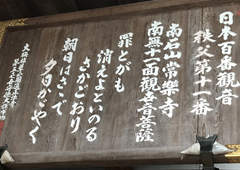 日本百番観音
秩父第十一番
南石山常楽寺
南無十一面観世音菩薩
罪とがも
消えよといのる
さかごおり
朝日はさして
夕日かがやく